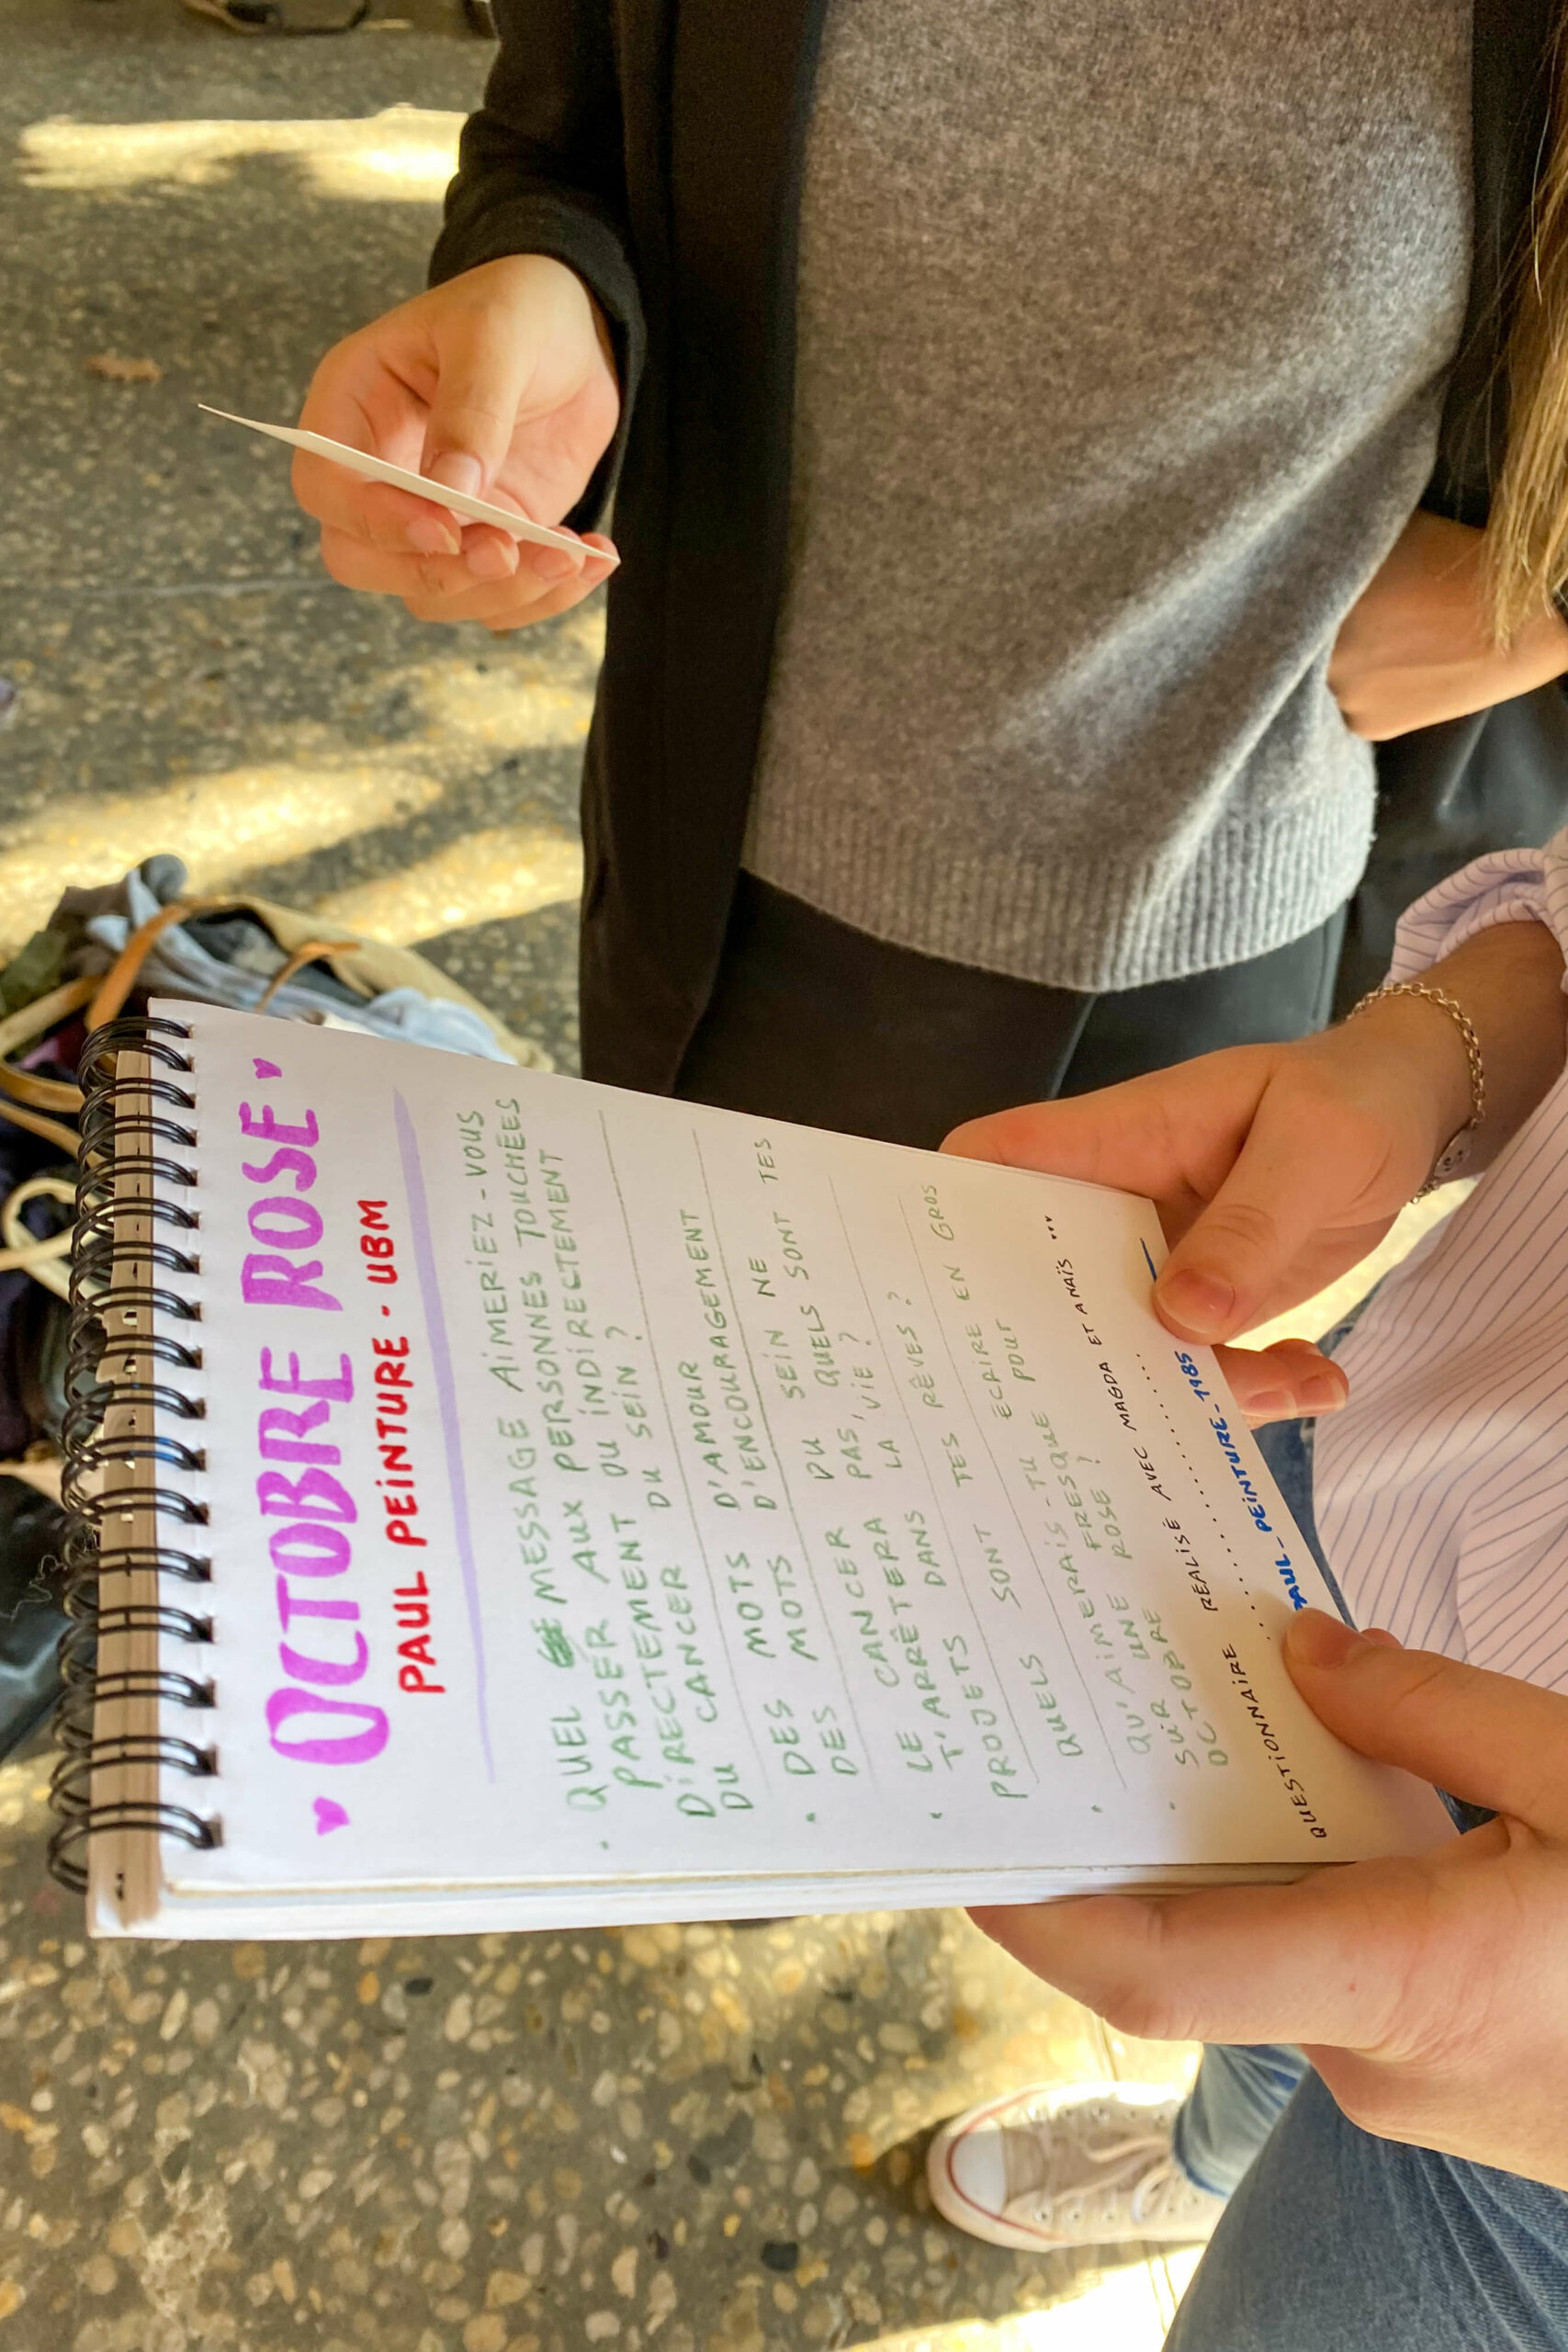 OCTOBRE ROSE
PAUL PEINTURE - UBM
• QUEL MESSAGE AIMERIEZ-VOUS
PASSER AUX PERSONNES TOUCHÉES
DIRECTEMENT OU INDIRECTEMENT
DU CANCER DU SEIN ?
• DES MOTS D'AMOUR
DES MOTS D'ENCOURAGEMENT
• LE CANCER DU SEIN NE
T'ARRÊTERA PAS, QUELS SONT TES
PROJETS DANS LA VIE ?
• QUELS SONT TES RÊVES ?
• QU'AIMERAIS-TU ÉCRIRE EN GROS
SUR UNE FRESQUE POUR
OCTOBRE ROSE ?
QUESTIONNAIRE RÉALISÉ AVEC MAGDA ET ANAÏS ...
PAUL - PEINTURE - 1985